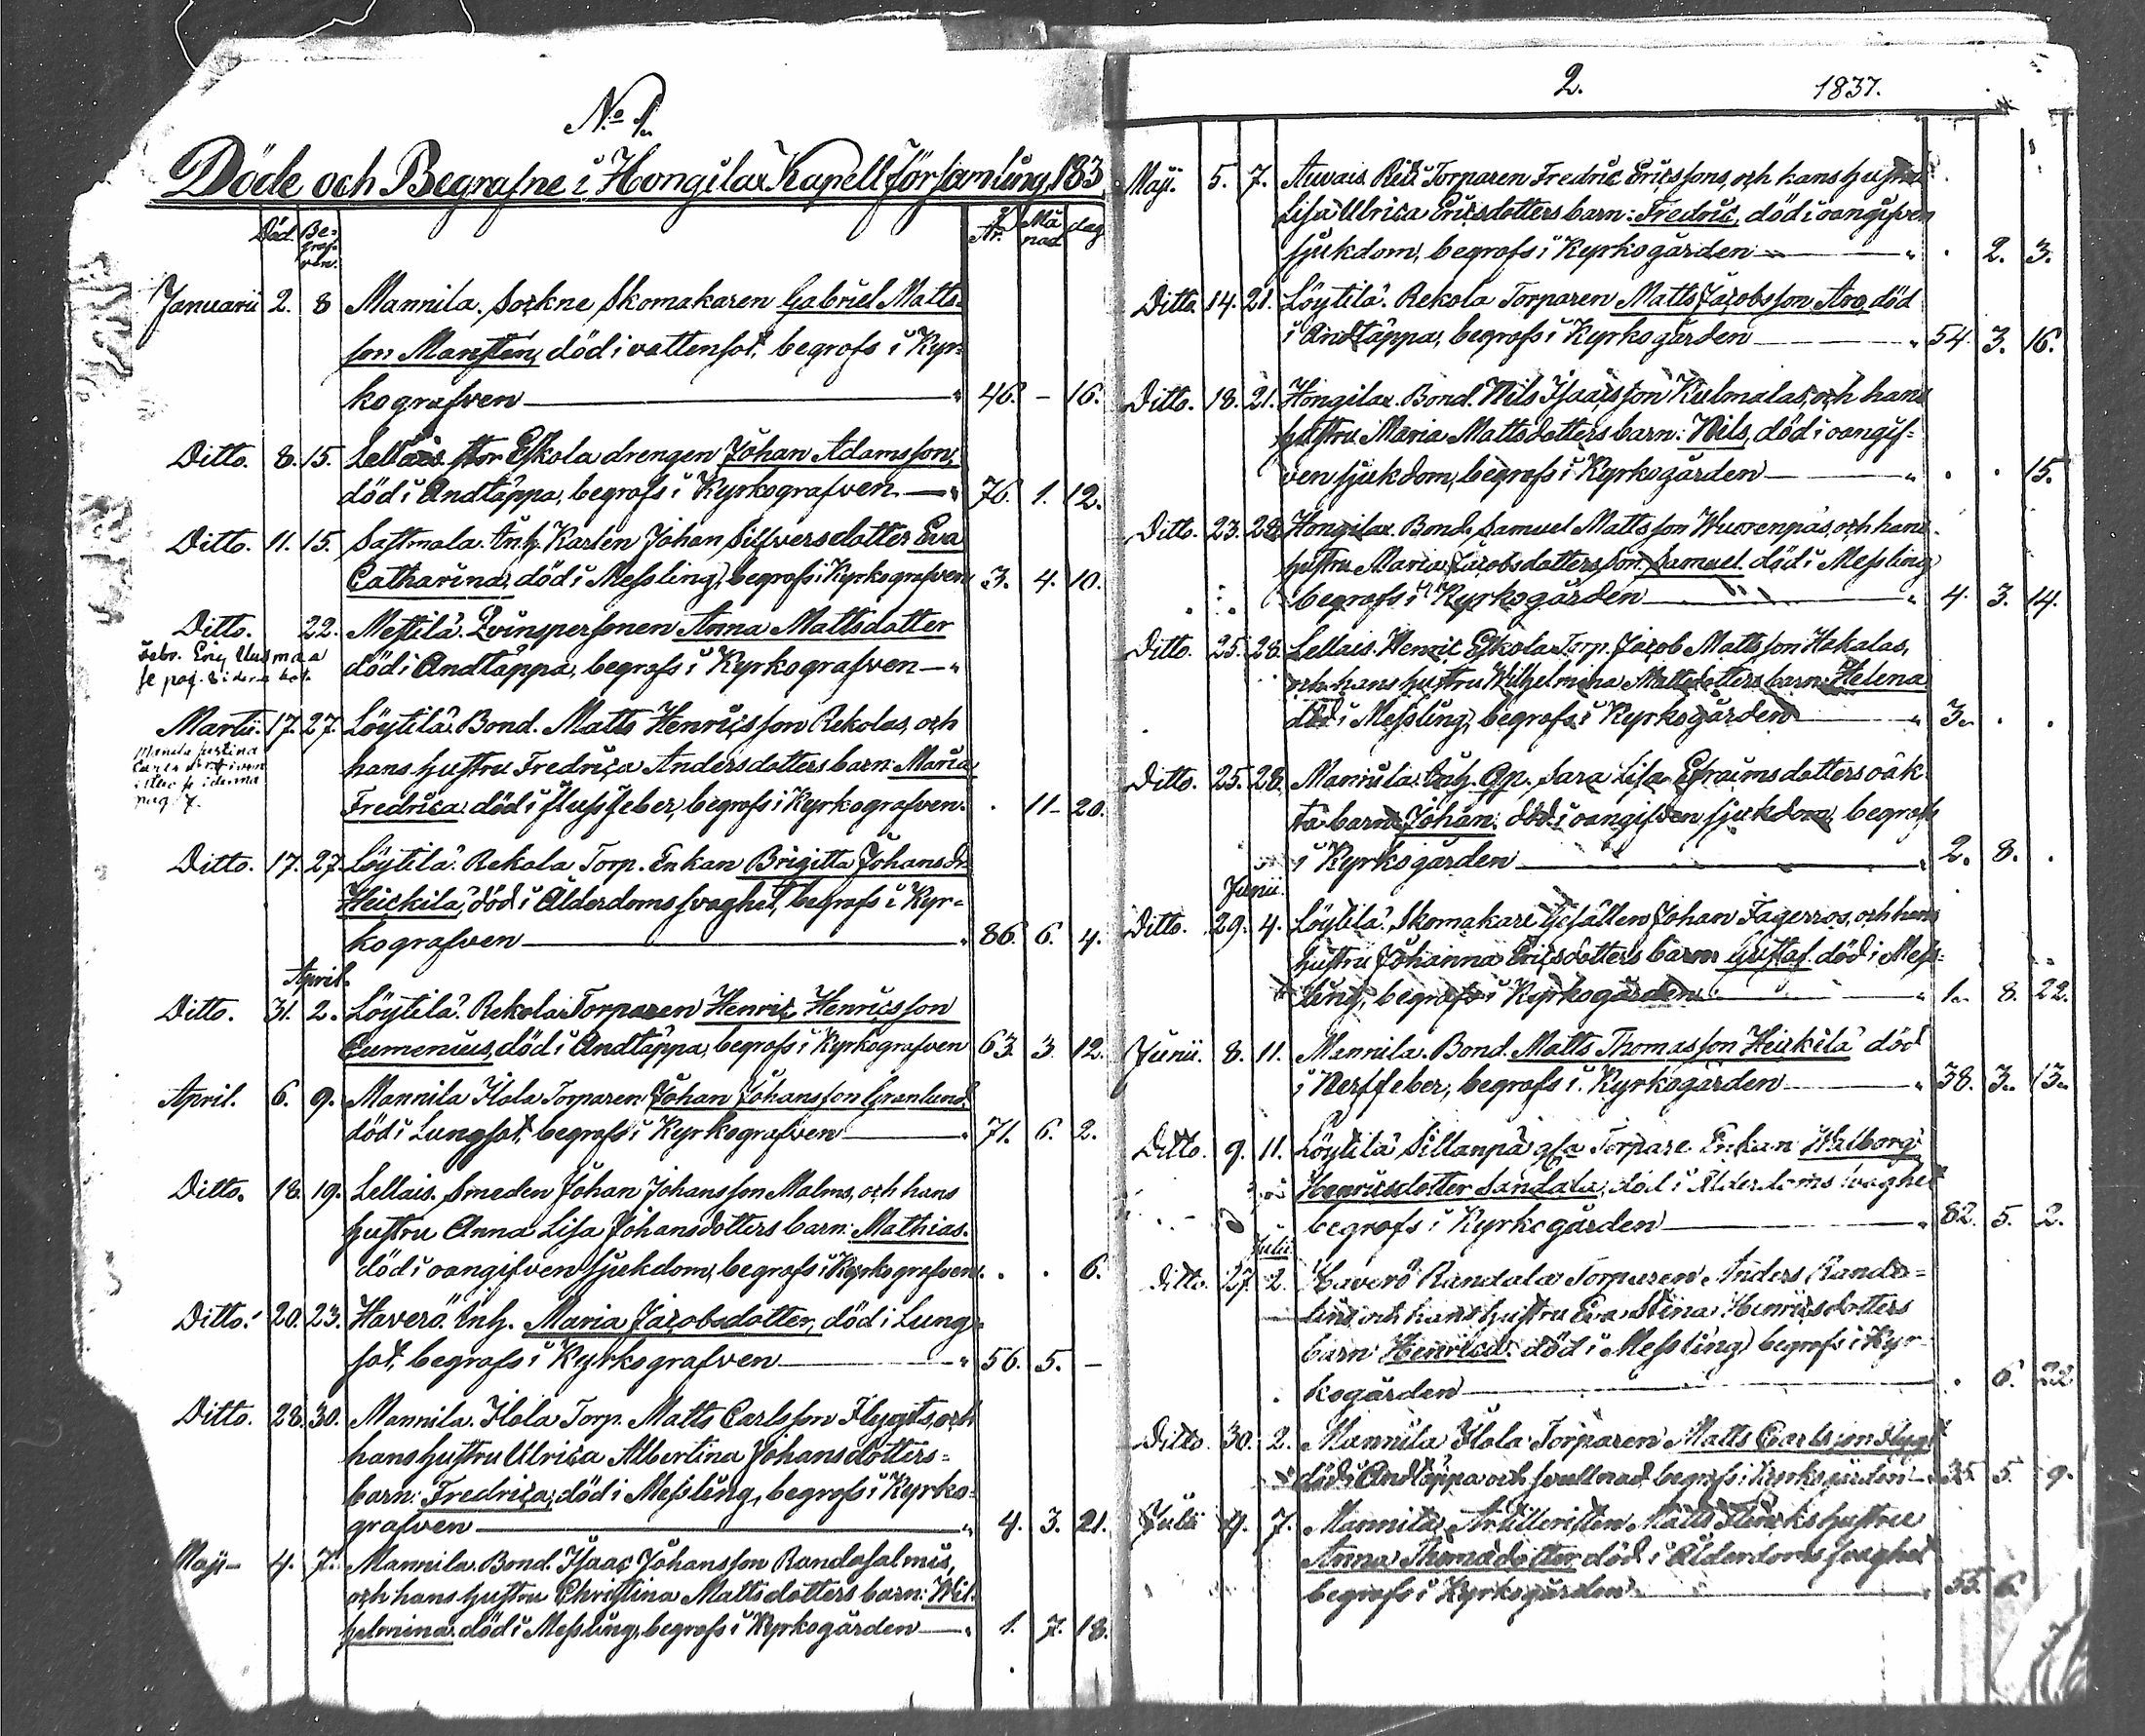 No 1.
Döde och Begrafne i Hongilax Kapell församling 183
Död. Be- År. Må dag
graf- nad
ven.
Januarii 2. 8 Mannila. Sockne Skomakaren Gabriel Matts
son Marsten, död i vattensot, begrofs i Kyr-
kografven 46. - 16.
Ditto. 8. 15. Lellais. Stor Eskola drengen Johan Adamsson,
död i Andtäppa, begrofs i Kyrkografven 76. 1. 12.
Ditto. 11. 15. Sastmala. Inh. Karlen Johan Silfversdotter Eva
Catharina, död i Messling, begrofs i Kyrkografven 3. 4. 10.
Ditto. 22. Mestilä. Qvinspersonen Anna Mattsdotter
död i Andtäppa, begrofs i Kyrkografven
Febr.
se pag. 8
Martii. 17. 27. Löytilä. Bond. Matts Henricsson Rekolas, och
hans hustru Fredrica Andersdotters barn: Maria
Fredrica död i flussfeber, begrofs i Kyrkografven. . 11 - 20.
pag 7.
Ditto. 17. 27. Löytilä. Rekola Torp. Enkan Brigitta Johansdr
Heickilä, död i Ålderdoms svaghet, begrofs i Kyr-
kografven 86. 6. 4.
April.
Ditto. 31. 2. Löytilä. Rekola Torparen Henric Henricsson
Eumenius, död i Andtäppa, begrofs i Kyrkografven 63. 3. 12.
April. 6. 9. Mannila Ilola Torparen Johan Johansson Granlund
död i Lungsot, begrofs i Kyrkografven 71. 6. 2.
Ditto. 18. 19. Lellais. Smeden Johan Johansson Malms, och hans
hustru Anna Lisa Johansdotters barn: Mathias.
död i oangifven sjukdom, begrofs i Kyrkografven. . . 6.
Ditto. 20. 23. Haverö. Inh. Maria Jacobsdotter, död i Lung-
sot, begrofs i Kyrkografven 56. 5. -
Ditto. 28. 30. Mannila. Ilola Torp. Matts Carlsson Flygts, och
hans hustru Ulrica Albertina Johansdotters-
barn: Fredrica, död i Messling, begrofs i Kyrko-
grafven 4. 3. 21.
Maji 4. 7. Mannila. Bond. Isaac Johansson Randasalmis,
och hans hustru Christina Mattsdotters barn: Wil-
helmina. död i Messling, begrofs i Kyrkogården 1. 7. 18.
2. 1837.
Maji. 5. 7. Auvais Torparen Fredric Ericssons, och hans hustru
Lisa Ulrica Ericsdotters barn: Fredric, död i oangifven
sjukdom, begrofs i Kyrkogården . 2. 3.
Ditto. 14. 21. Löytilä. Rekola Torparen Matts Jacobsson Aro, död
i Andtäppa, begrofs i Kyrkogården 54. 3. 16.
Ditto. 18. 21. Hongilax. Bond. Nils Isaacsson Kulmalas, och hans
hustru Maria Mattsdotters barn: Nils, död i oangif-
ven sjukdom, begrofs i Kyrkogården . . 15.
Ditto. 23. 28. Hongilax. Bond. Samuel Mattsson Wuorenpäs, och hans
hustru Maria Jacobsdotters Son: Samuel. död i Messling
begrofs i Kyrkogården 4. 3. 14.
Ditto. 25. 28. Lellais. Eskola Torp. Jacob Mattsson Hakalas,
och hans hustru Wilhelmina Mattsdotters barn: Helena
död i Messling, begrofs i Kyrkogården 3. . .
Ditto. 25. 28. Mannila. Inh. Qp. Sara Lisa Efraimsdotters oäk-
ta barn: Johan. död i oangifven sjukdom, begrofs
i Kyrkogården 2. 8. .
Junii.
Ditto. 29. 4. Löytilä. Skomakare Gesällen Johan Fagerros, och hans
hustru Johanna Ericsdotters barn: Gustaf. död i Mess-
ling, begrofs i Kyrkogården 1. 8. 22.
Junii. 8. 11. Mannila. Bond. Matts Thomasson Heickilä död
i Nerffeber, begrofs i Kyrkogården 38. 3. 13.
Ditto. 9. 11. Löytilä Sillanpä gla Torpare Enkan Walborg
Henricsdotter Sandala, död i Ålderdoms svaghet
begrofs i Kyrkogården 82. 5. 2.
Julii.
Ditto. 27. 2. Haverö Randala Torparen Anders Randa-
lins och hans hustru Eva Stina Henricsdotters
barn: Henrica. död i Messling, begrofs i Kyr-
kogården . 6. 22
Ditto. 30. 2. Mannila Ilola Torparen Matts Carlsson Flygt
död i Andtäppa och svullnad, begrofs i Kyrkogården 35. 5. 9.
Julii 4. 7. Mannila, Artilleristen Matts hustru
Anna Thomasdotter död i Ålderdoms svaghet
begrofs i Kyrkogården 55. 6.